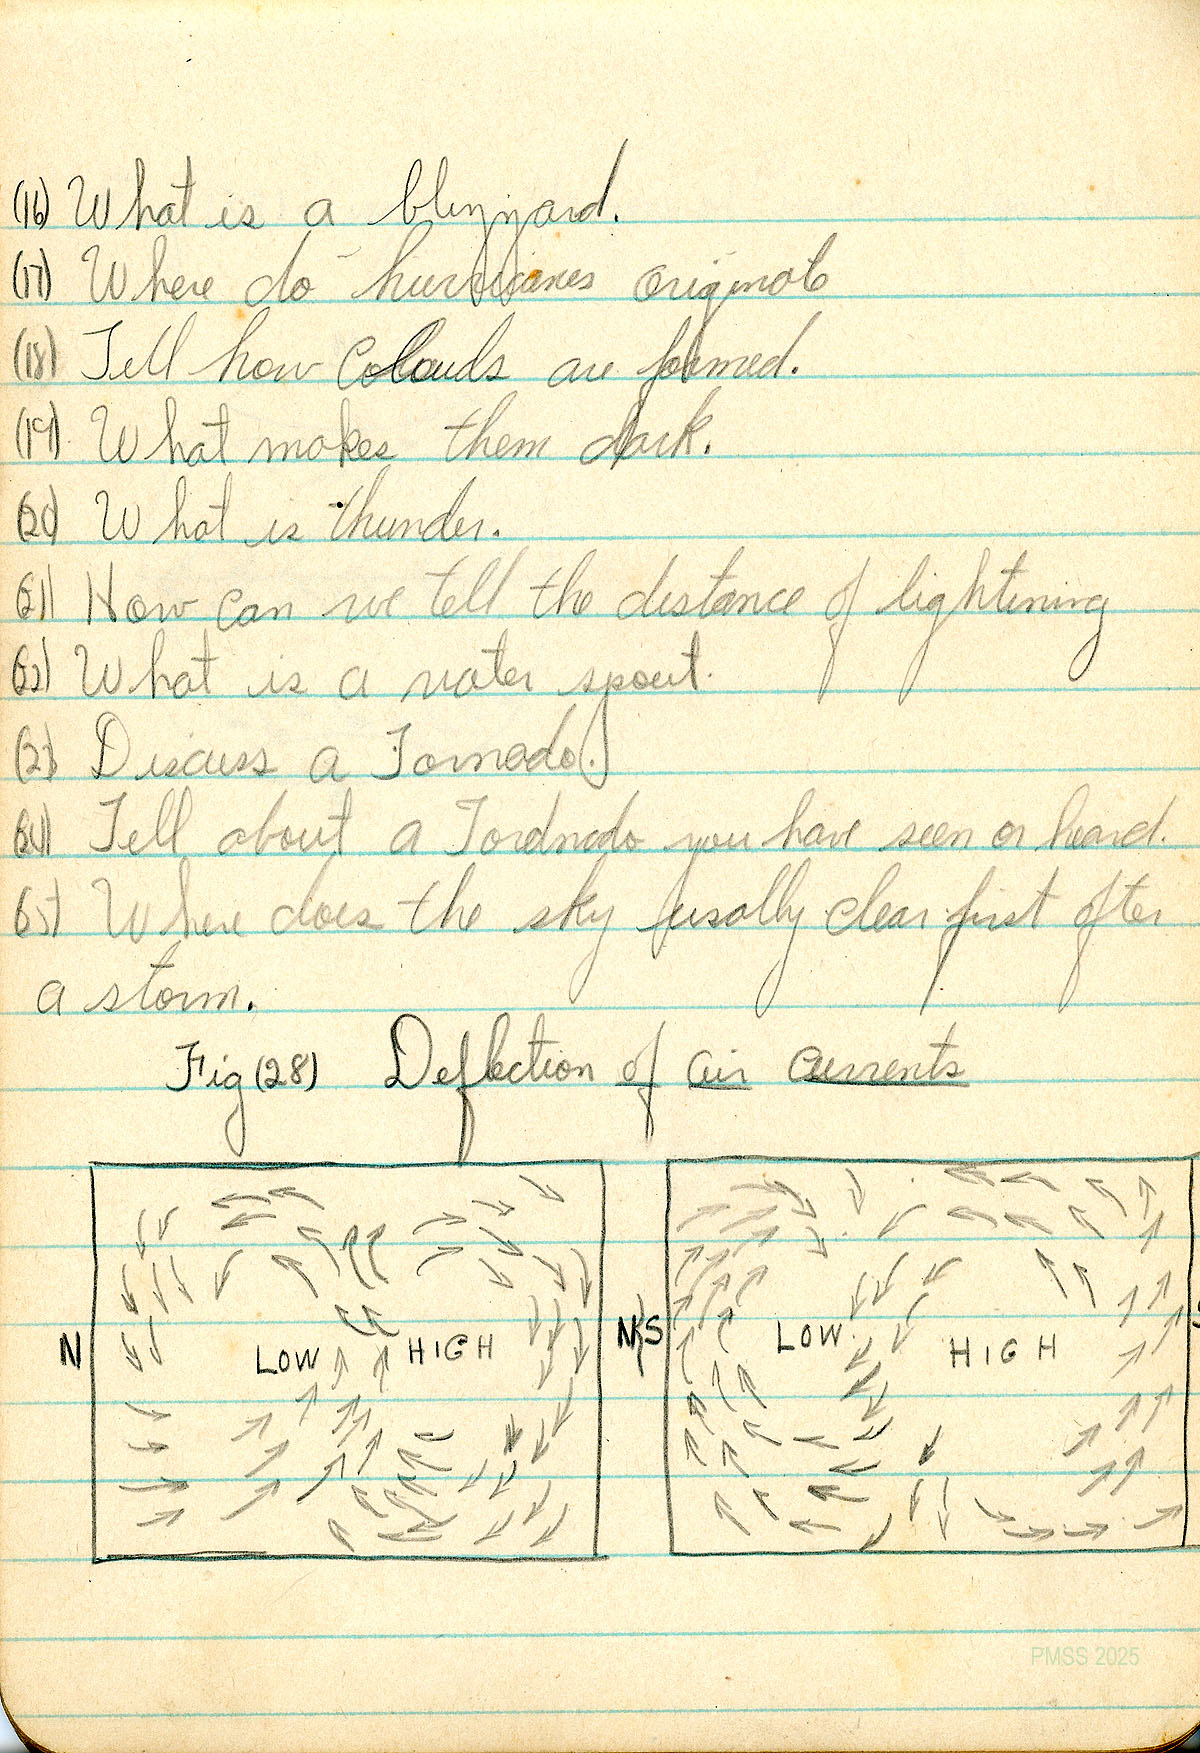 (16) What is a blizzard.
(17) Where do hurricanes originate
(18) Tell how Colouds are formed.
(19) What makes them dark.
(20) What is thunder.
(21) How can we tell the distance of lightening
(22) What is a water spout.
(23) Discuss a Tornado.
(24) Tell about a Tordnado you have seen or heard.
(25) Where does the sky usally clear first after
a storm.
Fig (28) Deflection of air currents
N LOW HIGH N S LOW HIGH S
PMSS 2025